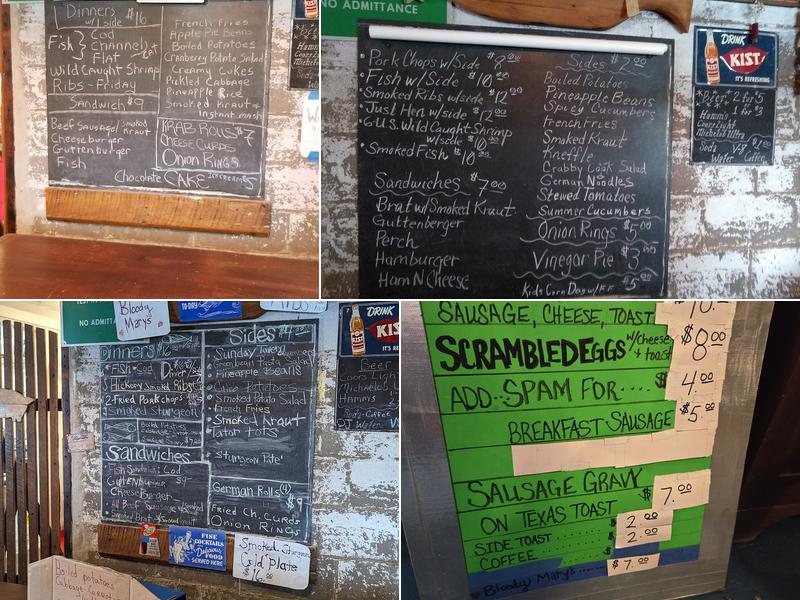 Dinners $16
w/1 side
Fish
Cod
Channel Cat
Flat
Wild Caught Shrimp
Ribs - Friday
Sandwich $9
Beef Sausage/smoked kraut
Cheeseburger
Guttenburger
Fish
French Fries
Apple Pie Beans
Boiled Potatoes
Cranberry Potato Salad
Creamy Cukes
Pickled Cabbage
Pineapple Rice
Smoked Kraut
Instant mash
KRAB ROLLS $7
CHEESE CURDS
Onion RINGS
Chocolate CAKE
NO ADMITTANCE
Pork Chops w/Side $8.00
Fish w/Side $10.00
Smoked Ribs w/side $12.00
Just Hen w/side $12.00
G.U.S. Wild Caught Shrimp
w/side $10.00
Smoked Fish $10.00
Sandwiches $7.00
Brat w/Smoked Kraut
Guttenberger
Perch
Hamburger
Ham N Cheese
Sides $2.00
Boiled Potatoes
Pineapple Beans
Spicy Cucumbers
French Fries
Smoked Kraut
Kneffle
Crabby Cook Salad
German Noodles
Stewed Tomatoes
Summer Cucumbers
Onion Rings $5.00
Vinegar Pie $3.00
Kids Corn Dog w/FF $5.00
DRINK
KIST
IT'S REFRESHING
2 for 5
1 for $3
Hamm's
Coors Light
Michelob Ultra
Soda V-8
Water Coffee
NO ADMITTA
Bloody
Marys
TO-DAY
Dinners
Fish - Cod
Hickory Smoked Ribs
2-Fried Pork chops
Smoked Sturgeon
Sandwiches
Fish Sandwich: Cod
Guttenburger $9
Cheese Burger
All Beef Sausage
Sides
Sunday
Pineapple Beans
Smoked Potato Salad
French Fries
Smoked Kraut
Tator Tots
Sturgeon Pate'
German Rolls (4)
$9
Fried Ch. Curds
Onion RINGS
DRINK
KIS
IT'S RE
Beer
Coors Light
Michelob U
Hamm's
Soda-Coffee
FINE
COCKTAILS
Delicious
FOOD
SERVED HERE
Smoked Sturgeon
Cold Plate
$16.00
Boiled potatoes
SAUSAGE, CHEESE, TOAST
10.
SCRAMBLED EGGS w/cheese + toast
$8.00
ADD SPAM FOR.... $4.00
BREAKFAST SAUSAGE $5.00
SAUSAGE GRAVY
ON TEXAS TOAST $7.00
SIDE TOAST ....... $2.00
COFFEE ........... $2.00
Bloody Mary's ..... $7.00